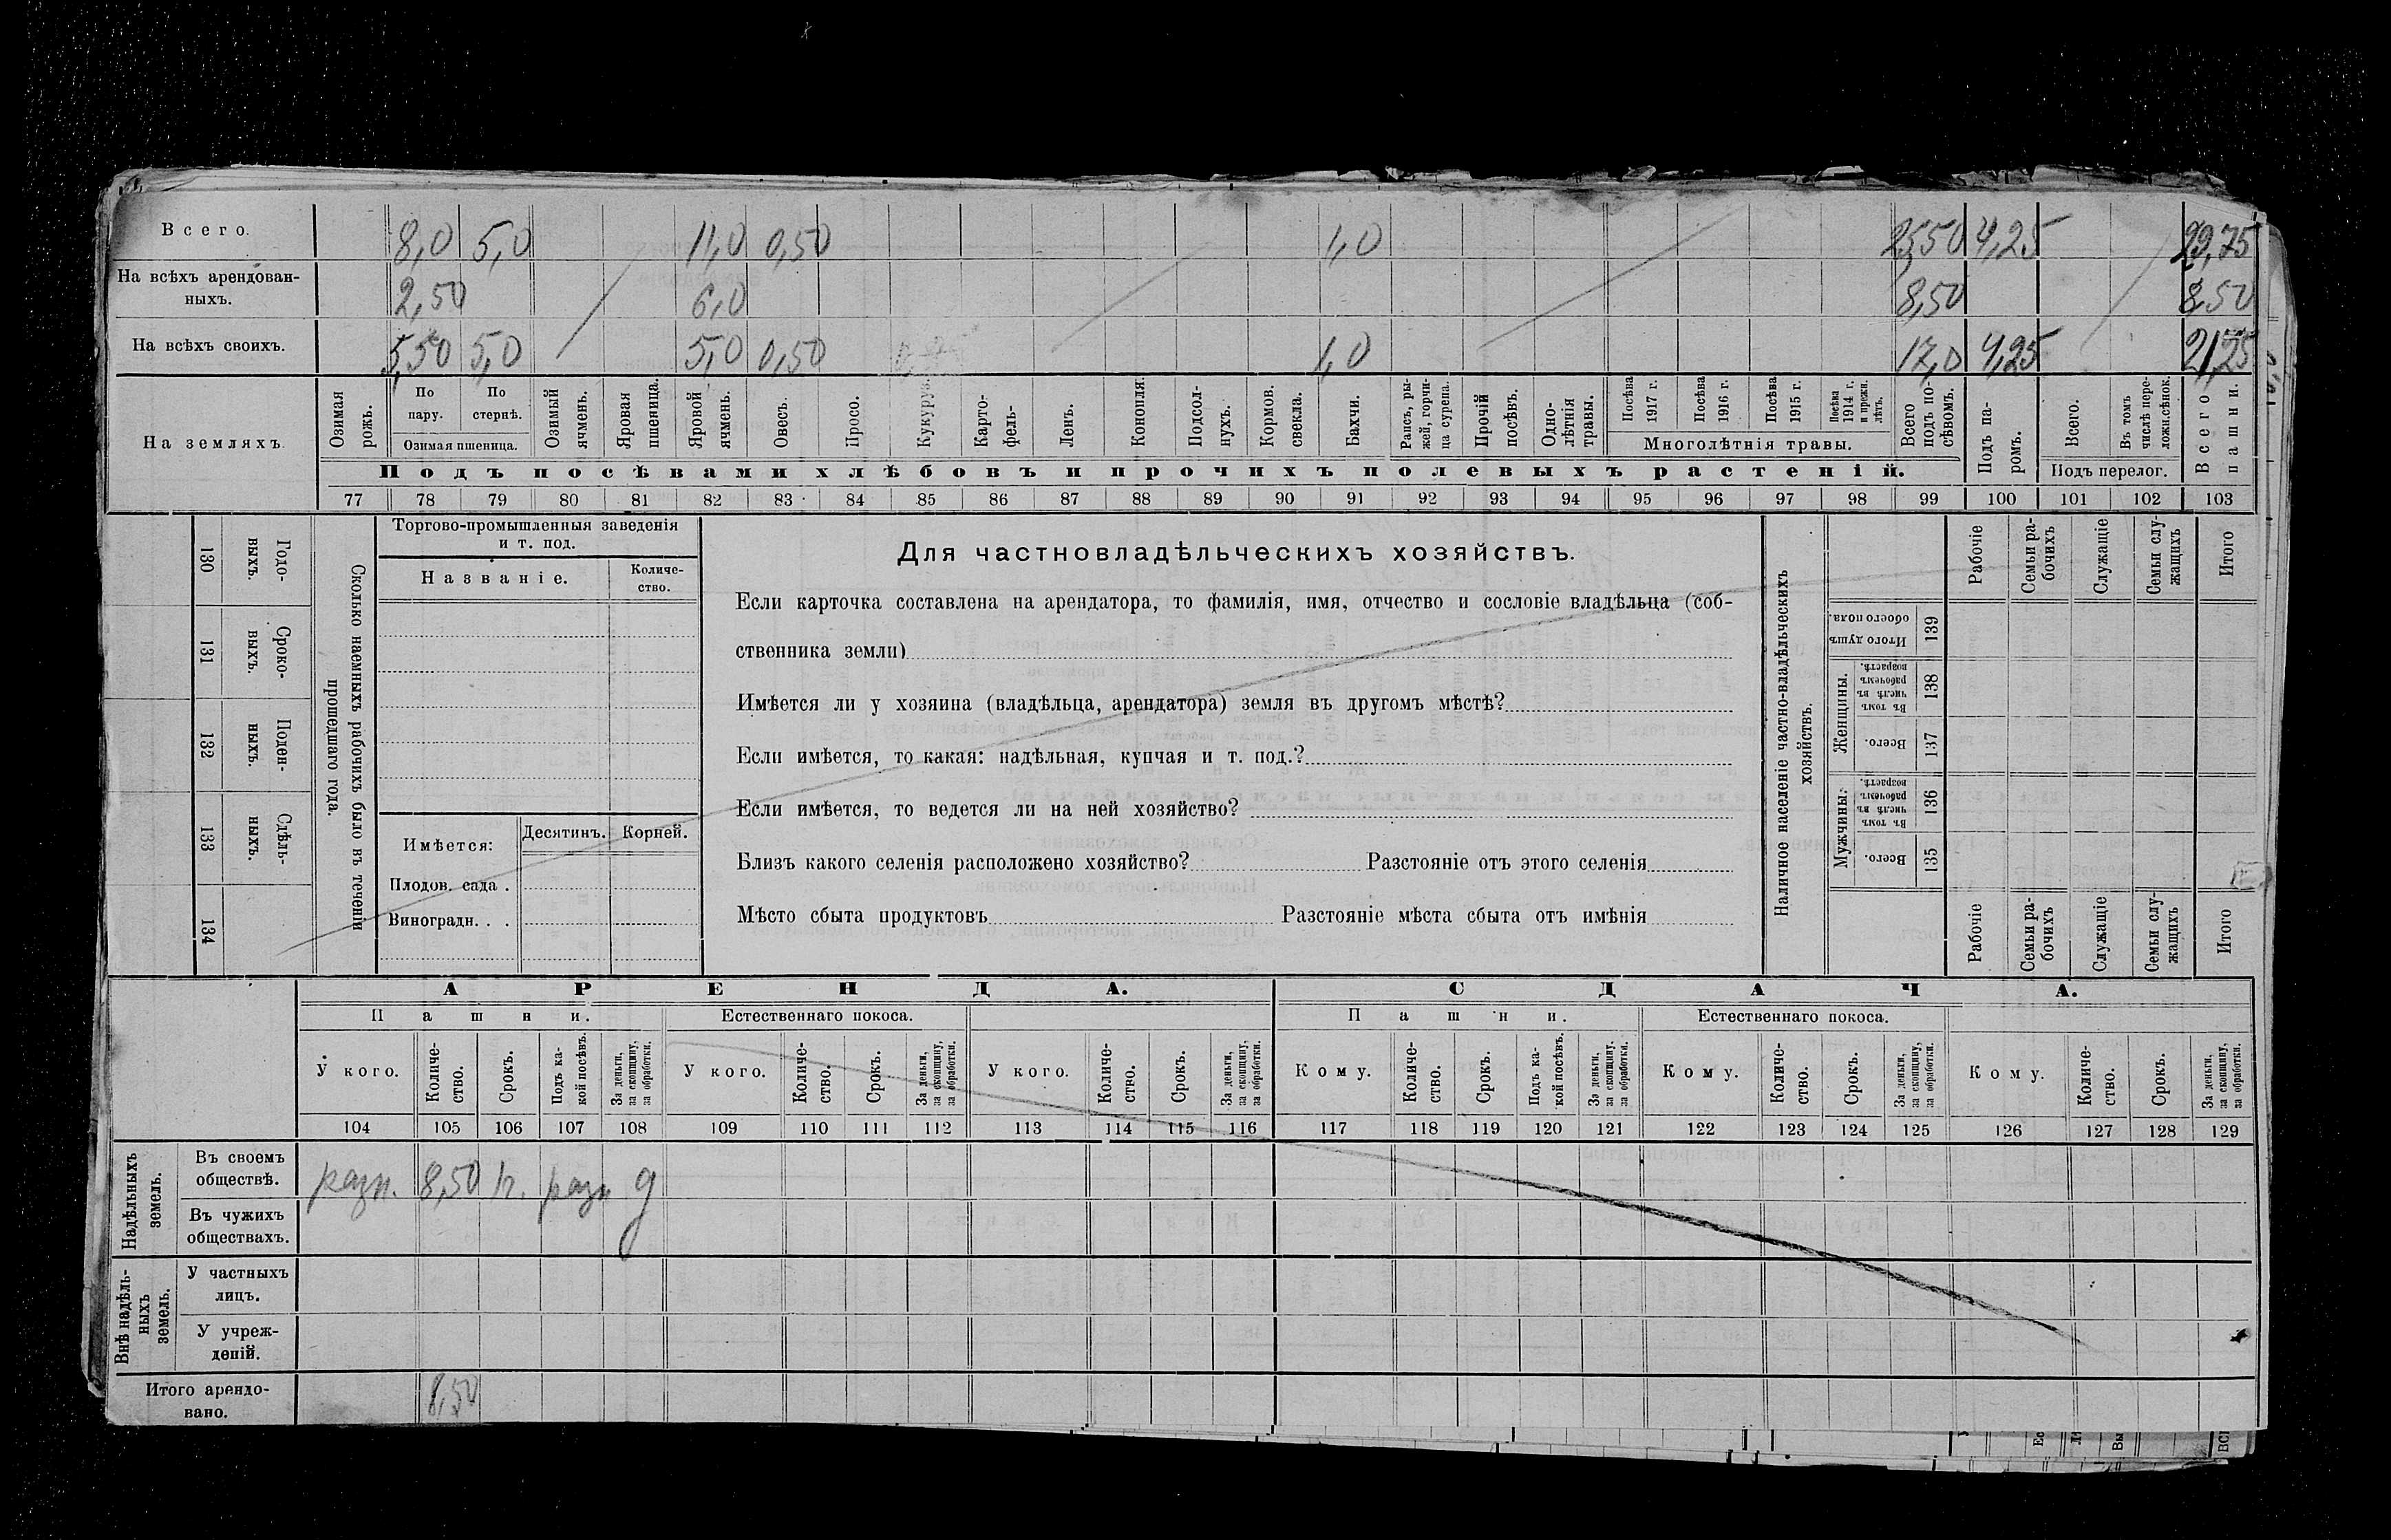 Всего. 8,0 5,0 11,0 0,50 1,0 25,50 4,25 29,75
На всѣхъ арендован-
ныхъ. 2,50 6,0 8,50 8,50
На всѣхъ своихъ. 5,50 5,0 5,0 0,50 1,0 17,0 4,25 21,25
На земляхъ
Озимая рожь.
По пару.
По стернѣ.
Озимая пшеница.
Озимый ячмень.
Яровая пшеница.
Яровой ячмень.
Овесъ.
Просо.
Кукуруз.
Карто-
фель-
Ленъ.
Конопля.
Подсол-
нухъ.
Кормов. свекла.
Бахчи.
Рапсъ, ры-
жей, горчи-
ца сурепа.
Прочій посѣвъ.
Одно-
лѣтнія травы.
Посѣва 1917 г.
Посѣва 1916 г.
Посѣва 1915 г.
Посѣва 1914 г. и прежн. лѣтъ.
Многолѣтнія травы.
Всего подъ по-
сѣвомъ.
Подъ па-
ромъ.
Всего.
Въ томъ числѣ пере-
ложн.сѣнок.
Подъ перелог.
Всего пашни.
Подъ посѣвами хлѣбовъ и прочихъ полевыхъ растеній.
77 78 79 80 81 82 83 84 85 86 87 88 89 90 91 92 93 94 95 96 97 98 99 100 101 102 103
130 Годо-
выхъ.
131 Сроко-
выхъ.
132 Поден-
ныхъ.
133 Сдѣль-
ныхъ.
134
Сколько наемныхъ рабочихъ было въ теченіи
прошедшаго года.
Торгово-промышленныя заведенія
и т. под.
Названіе.
Количе-
ство.
Имѣется: Десятинъ. Корней.
Плодов. сада .
Виноградн. . .
Для частновладѣльческихъ хозяйствъ.
Если карточка составлена на арендатора, то фамилія, имя, отчество и сословіе владѣльца (соб-
ственника земли)
Имѣется ли у хозяина (владѣльца, арендатора) земля въ другомъ мѣстѣ?
Если имѣется, то какая: надѣльная, купчая и т. под.?
Если имѣется, то ведется ли на ней хозяйство?
Близъ какого селенія расположено хозяйство? Разстояніе отъ этого селенія
Мѣсто сбыта продуктовъ Разстояніе мѣста сбыта отъ имѣнія
Наличное населеніе частно-владѣльческихъ
хозяйствъ.
Рабочіе
Семьи ра-
бочихъ
Служащіе
Семьи слу-
жащихъ
Итого
Итого душъ обоего пола. 139
Женщины.
Въ томъ числѣ въ рабочемъ возрастѣ. 138
Всего. 137
Мужчины.
Въ томъ числѣ въ рабочемъ возрастѣ. 136
Всего. 135
Рабочіе
Семьи ра-
бочихъ
Служащіе
Семьи слу-
жащихъ
Итого
АРЕНДА. СДАЧА.
Пашни. Естественнаго покоса. Пашни. Естественнаго покоса.
У кого.
Количе-
ство.
Срокъ.
Подъ ка-
кой посѣвъ.
За деньги, за скопщину, за обработки.
У кого.
Количе-
ство.
Срокъ.
За деньги, за скопщину, за обработки.
У кого.
Количе-
ство.
Срокъ.
За деньги, за скопщину, за обработки.
Кому.
Количе-
ство.
Срокъ.
Подъ ка-
кой посѣвъ.
За деньги, за скопщину, за обработки.
Кому.
Количе-
ство.
Срокъ.
За деньги, за скопщину, за обработки.
Кому.
Количе-
ство.
Срокъ.
За деньги, за скопщину, за обработки.
104 105 106 107 108 109 110 111 112 113 114 115 116 117 118 119 120 121 122 123 124 125 126 127 128 129
Надѣльныхъ
земель.
Въ своемъ
обществѣ. разн. 8,50 разн д
Въ чужихъ
обществахъ.
Внѣ надѣль-
ныхъ
земель.
У частныхъ
лицъ.
У учреж-
деній.
Итого арендо-
вано. 8,50